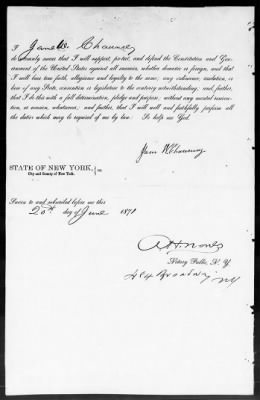 I James W. Chauncey
do solemnly swear that I will support, protect, and defend the Constitution and Gov-
ernment of the United States against all enemies, whether domestic or foreign, and that
I will bear true faith, allegiance and loyalty to the same, any ordinance, resolution, or
law of any State, convention or legislature to the contrary notwithstanding; and further,
that I do this with a full determination, pledge and purpose, without any mental reserva-
tion, or evasion, whatsoever; and further, that I will well and faithfully perform all
the duties which may be required of me by law. So help me God.
STATE OF NEW YORK,
City and County of New York. ss:
Sworn to and subscribed before me this
20th day of June 187
Notary Public, N. Y.
Broadway NY